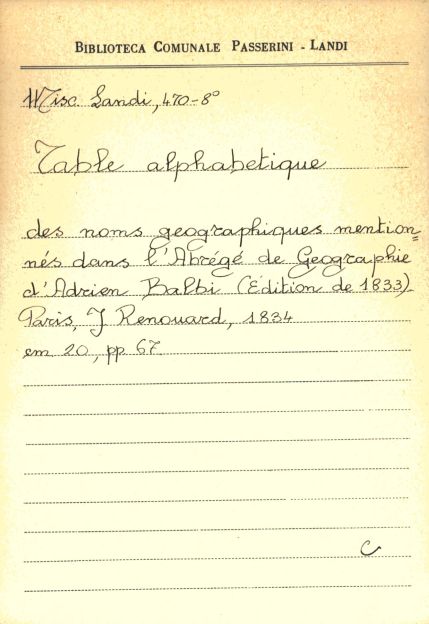 BIBLIOTECA COMUNALE PASSERINI - LANDI
Misc. Landi, 470-8°
Table alphabetique
des noms geographiques mention=
nés dans l'Abrégé de Geographie
d'Adrien Balbi (Edition de 1833).
Paris, J. Renouard, 1834
cm 20, pp 67.
C